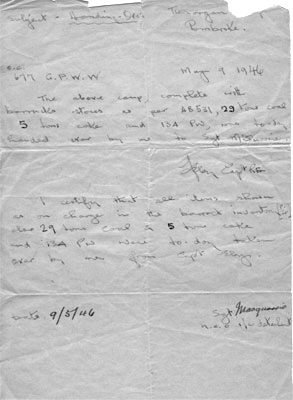 Subject - Handing-Over
Pembroke.
677 G.P.W.W. May 9 1946
The above camp, complete with
barrack stores as per AB531, 29 tons coal
5 tons coke and 134 PW, was to-day
handed over by me to Sgt
Capt RE
I certify that all items shown
as on charge in the barrack inventories,
also 29 tons coal & 5 tons coke
and 134 PW were to-day taken
over by me from Capt
Date. 9/5/46 Sgt